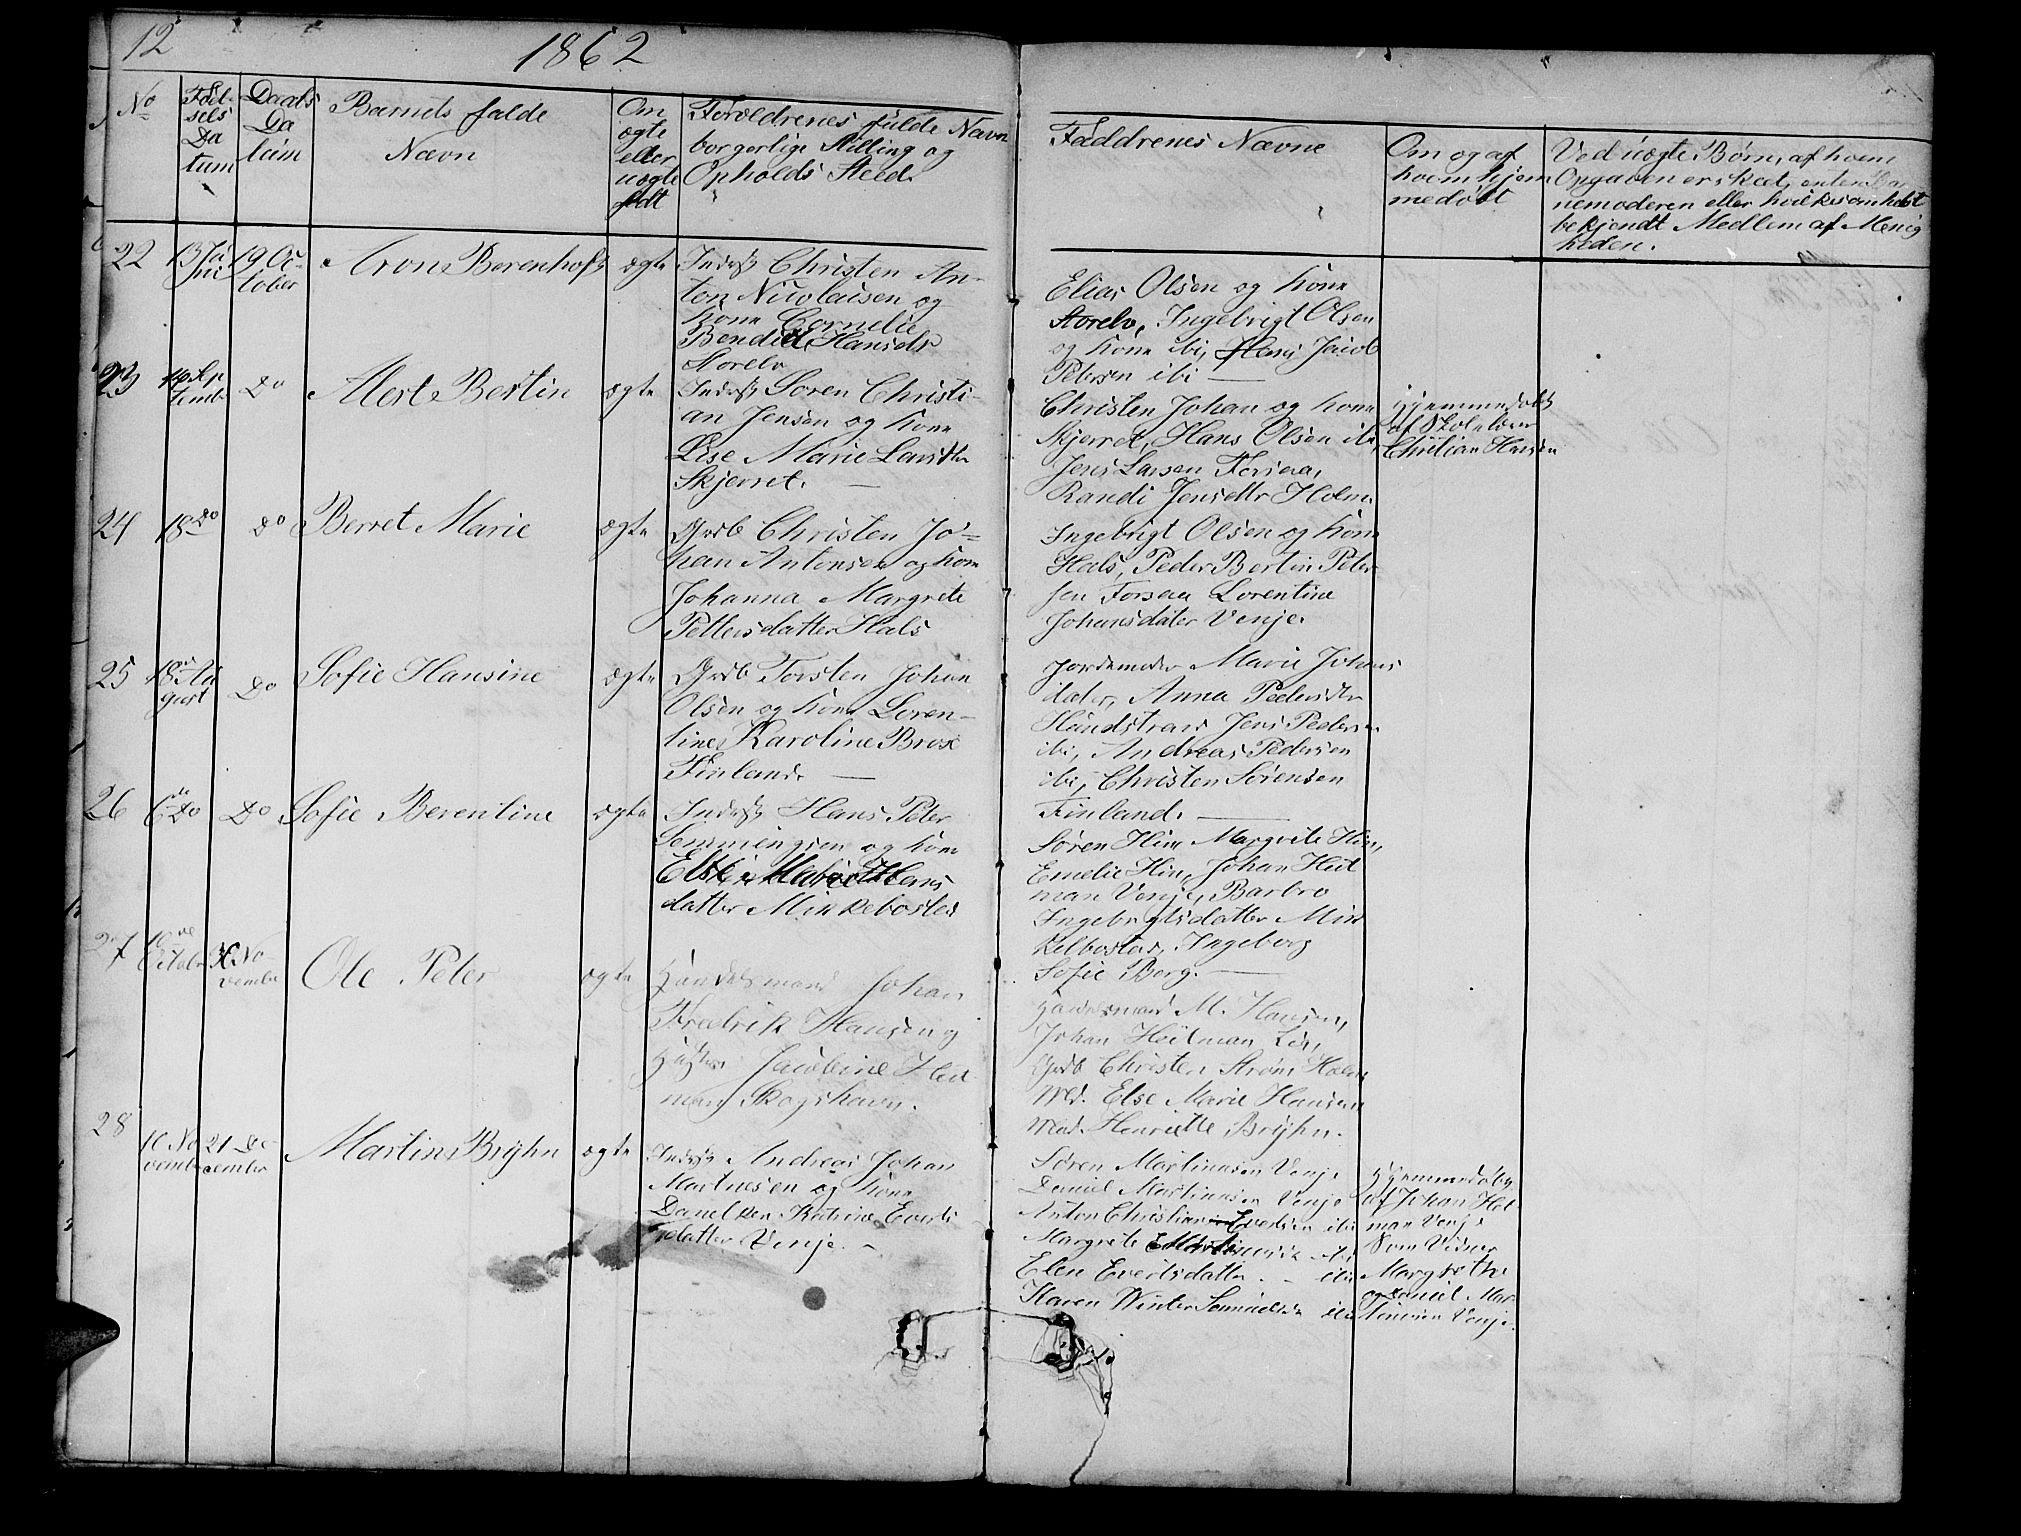 12
1862
No
Fød-
sels
Da
tum
Daabs
Da
tum
Barnets fulde
Navn
Om
ægte
eller
uægte
født
Forældrenes fulde Navn
borgerlige Stilling og
Opholds Sted.
Faddrenes Navne
Om og af
hvem hjem
medøbt
Ved uægte Børn, af hvem
Opgaven er skeet, enten Bar
nemoderen eller hvilkesomhelst
bekjendt Medlem af Menig
heden.
22
13 Ju
ni
19 Oc-
tober
Aron Berenhoft
ægte
Inderst Christen An-
ton Nicolaisen og
Kone Cornelie
Bendicte Hansdtr
Storelv
Elias Olsen og Kone
Storelv, Ingebrigt Olsen
og Kone ibi, Jacob
Petersen ibi
23
Sep
tembr
Do
Mert Bertin
ægte
Inderst Søren Christi-
an Jensen og Kone
Lise Marie Larsdtr
Skjerret.
Christen Johan og Kone
Skjerret, Hans Olsen ibi,
Jens Larsen Forsaa,
Randi Jensdtr Holm.
Hjemmedøbt
af Skolelærer
Christian Hansen
24
18 Do
Do
Berret Marie
ægte
Grdb Christen Jo-
han Antonsen og Kone
Johanna Margrete
Pettersdatter Hals
Ingebrigt Olsen og Kone
Hals, Peder Bertin Peter
sen Forsaa Lorentine
Johansdater Venje.
25
18 Au
gust
Do
Sofie Hansine
ægte
Grdb Torsten Johan
Olsen og Kone Loren-
tine Karoline Brox
Finland.
Jordemoder Marie Johans
dater, Anna Pedersdtr
Hundstrand Jens Pedersen
ibi, Andreas Pedersen
ibi, Christen Sørensen
Finland.
26
6 Do
Do
Sofie Berentine
ægte
Inderst Hans Peter
Semmingsen og Kone
Else Marie Hans
datter Minkebosted
Søren Him Margrete Him,
Emelie Him, Johan Heit
man Venje, Barbro
Ingebrgtsdatter Min
kelbostad, Ingeborg
Sofie Borg.
27
10de
Octobr
No-
vember
Ole Peter
ægte
Handelsmand Johan
Fredrik Hansen og
Hustru Jacobine Heit
man Skogshavn.
Handelsmand M. Hansen,
Johan Heitman
Grdb Christen Strøm Holm
Mad. Else Marie Hansen
Mad. Henriette Brÿhn.
28
10 No
vembr
21 De-
cember
Martin Brÿhn
ægte
Inderst Andreas Johan
Martinesen og Kone
Danelken Katrine Everts
datter Venje.
Søren Martinusen Venje
Daniel Martinusen Venje
Anton Christian Evertsen ibi
Margrete ibi
Elen Evertsdatter - ibi
Karen Winter ibi
Hjemmedøbt
af Johan Heit
man Venje
Som Vidner
Margrethe
og Daniel Mar-
tinusen Venje.